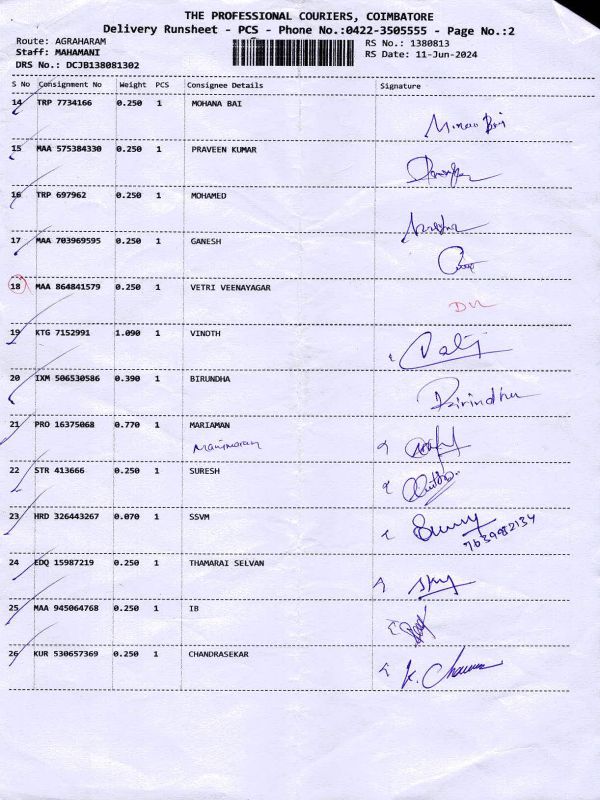 THE PROFESSIONAL COURIERS, COIMBATORE
Delivery Runsheet - PCS - Phone No.:0422-3505555 - Page No.:2
Route: AGRAHARAM RS No.: 1380813
Staff: MAHAMANI RS Date: 11-Jun-2024
DRS No.: DCJB138081302
S No Consignment No Weight PCS Consignee Details Signature
14 TRP 7734166 0.250 1 MOHANA BAI
Mohana Bai
15 MAA 575384330 0.250 1 PRAVEEN KUMAR
16 TRP 697962 0.250 1 MOHAMED
17 MAA 703969595 0.250 1 GANESH
18 MAA 864841579 0.250 1 VETRI VEENAYAGAR
DL
19 KTG 7152991 1.090 1 VINOTH
20 IXM 506530586 0.390 1 BIRUNDHA
Birindha
21 PRO 16375068 0.770 1 MARIAMAN
Manimaran
22 STR 413666 0.250 1 SURESH
23 HRD 326443267 0.070 1 SSVM
9639982134
24 EDQ 15987219 0.250 1 THAMARAI SELVAN
25 MAA 945064768 0.250 1 IB
26 KUR 530657369 0.250 1 CHANDRASEKAR